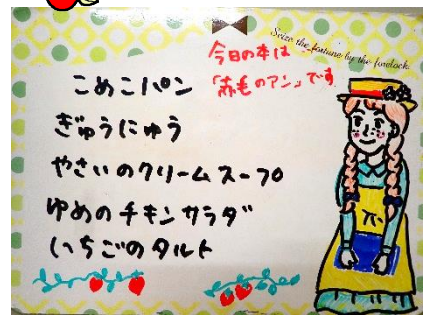 Seize the fortune by the forelock.
今日の本は
「赤毛のアン」です
こめこパン
ぎゅうにゅう
やさいのクリームスープ
ゆめのチキンサラダ
いちごのタルト